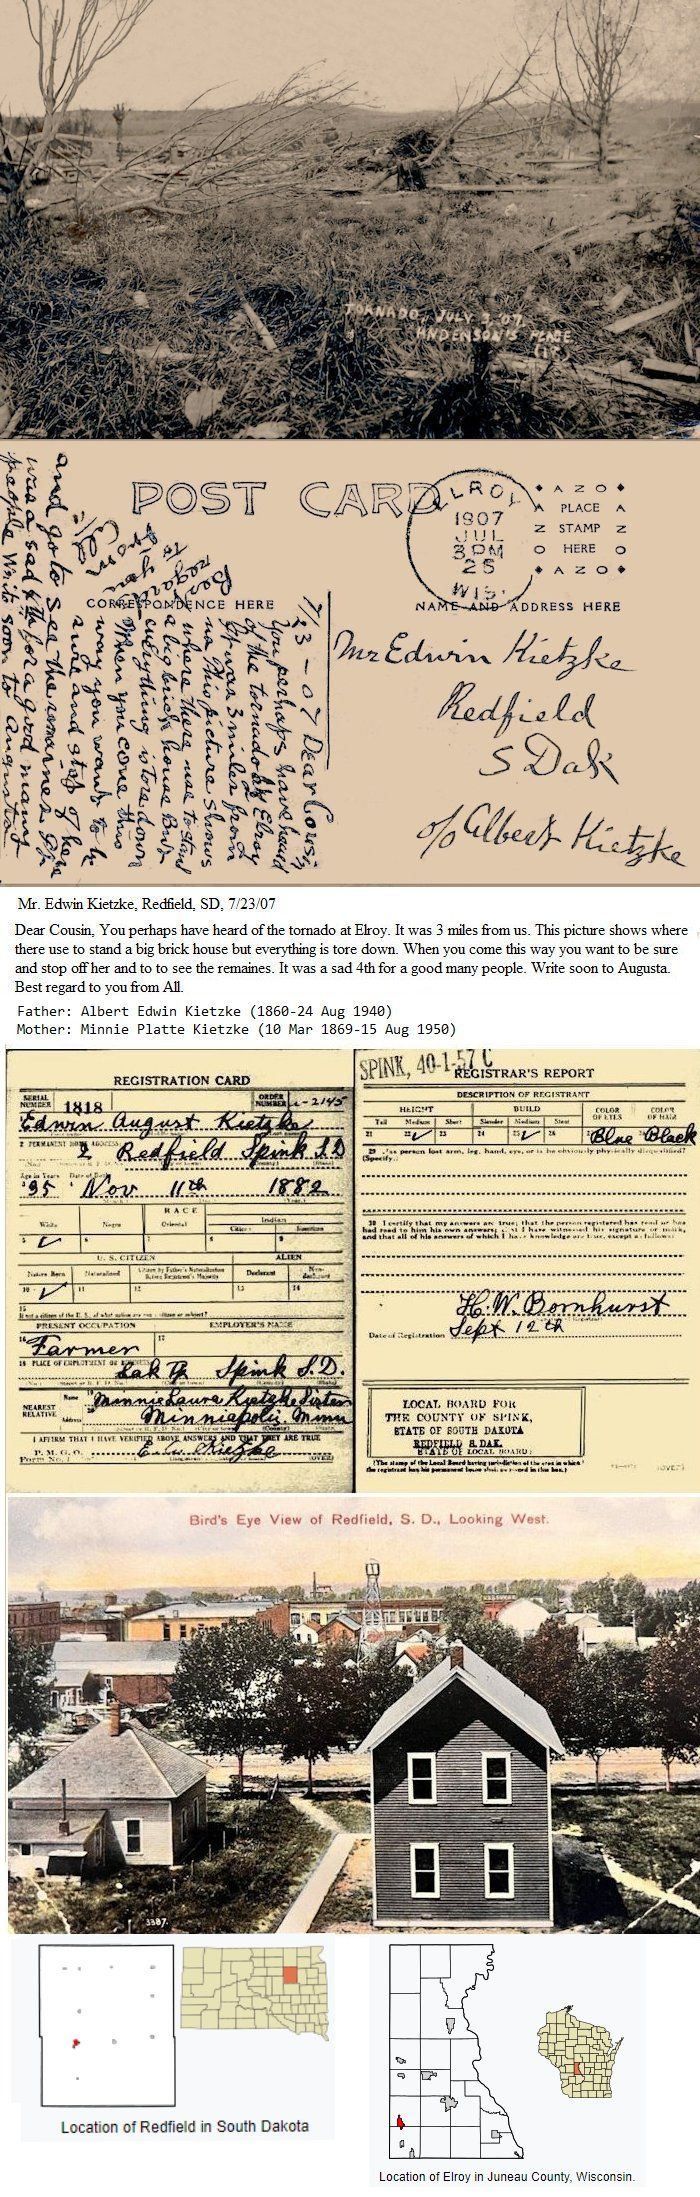 TORNADO, JULY 3, '07.
ANDENSON'S PLACE.
POST CARD
ELROY
1907
JUL
3 PM
25
WIS.
AZO
PLACE
STAMP
HERE
AZO
CORRESPONDENCE HERE
NAME AND ADDRESS HERE
7/23-07 Dear Cousin
You perhaps have heard
of the tornado at Elroy
It was 3 miles from
us This picture shows
where there use to stand
a big brick house But
everything is tore down
When you come this
way you want to be
sure and stop of here
and go to see the remaines It
was a sad 4th for a good many
people Write soon to Augusta
Best
regard
to you
from
All
Mr Edwin Kietzke
Redfield
S Dak
c/o Albert Kietzke
Mr. Edwin Kietzke, Redfield, SD, 7/23/07
Dear Cousin, You perhaps have heard of the tornado at Elroy. It was 3 miles from us. This picture shows where
there use to stand a big brick house but everything is tore down. When you come this way you want to be sure
and stop off her and to to see the remaines. It was a sad 4th for a good many people. Write soon to Augusta.
Best regard to you from All.
Father: Albert Edwin Kietzke (1860-24 Aug 1940)
Mother: Minnie Platte Kietzke (10 Mar 1869-15 Aug 1950)
REGISTRATION CARD
SERIAL NUMBER 1818 ORDER NUMBER 2145
Edwin August Kietzke
2 PERMANENT HOME ADDRESS:
2 Redfield Spink S.D
Age in Years Date of Birth
35 Nov 11th 1882
RACE
White Negro Oriental Indian
Citizen
5 6 7 8 9
U. S. CITIZEN ALIEN
Native Born Naturalized Citizen by Father's Naturalization Before Registrant's Majority Declarant Non-declarant
10 11 12 13 14
15
If not a citizen of the U. S., of what nation are you a citizen or subject?
PRESENT OCCUPATION EMPLOYER'S NAME
16 Farmer 17
18 PLACE OF EMPLOYMENT OR BUSINESS:
Spink S.D.
NEAREST RELATIVE
Name 19 Minnie Laura Kietzke Sister
Address 20 Minneapolis Minn
I AFFIRM THAT I HAVE VERIFIED ABOVE ANSWERS AND THAT THEY ARE TRUE
P. M. G. O.
Form No. 1
(OVER)
SPINK, 40-1-57 C
REGISTRAR'S REPORT
DESCRIPTION OF REGISTRANT
HEIGHT BUILD COLOR OF EYES COLOR OF HAIR
Tall Medium Short Slender Medium Stout
21 22 23 24 25 26 27 Blue 28 Black
29 Has person lost arm, leg, hand, eye, or is he obviously physically disqualified?
(Specify).
30 I certify that my answers are true; that the person registered has read or has
had read to him his own answers; that I have witnessed his signature or mark,
and that all of his answers of which I have knowledge are true, except as follows:
H. W. Bornhurst
Date of Registration Sept 12th
LOCAL BOARD FOR
THE COUNTY OF SPINK,
STATE OF SOUTH DAKOTA
REDFIELD S. DAK.
(The stamp of the Local Board having jurisdiction of the area in which
the registrant has his permanent home shall be placed in this box.)
(OVER)
Bird's Eye View of Redfield, S. D., Looking West.
3387.
Location of Redfield in South Dakota
Location of Elroy in Juneau County, Wisconsin.